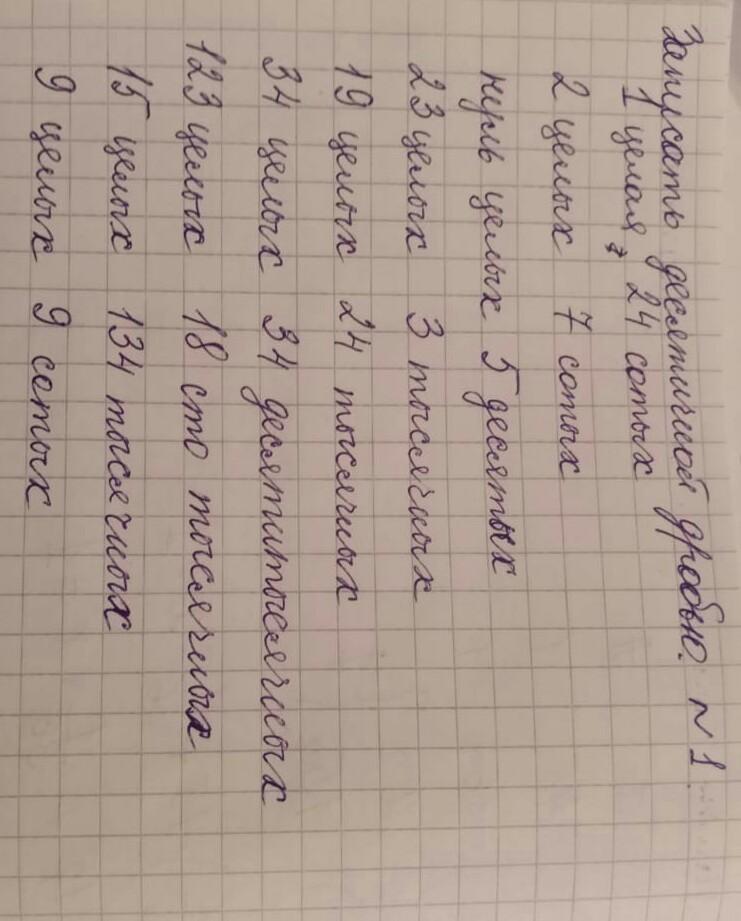 Записать десятичной дробью. N 1
1 целая, 24 сотых
2 целых 7 сотых
нуль целых 5 десятых
23 целых 3 тысячных
19 целых 24 тысячных
34 целых 34 десятитысячных
123 целых 18 сто тысячных
15 целых 134 тысячных
9 целых 9 сотых